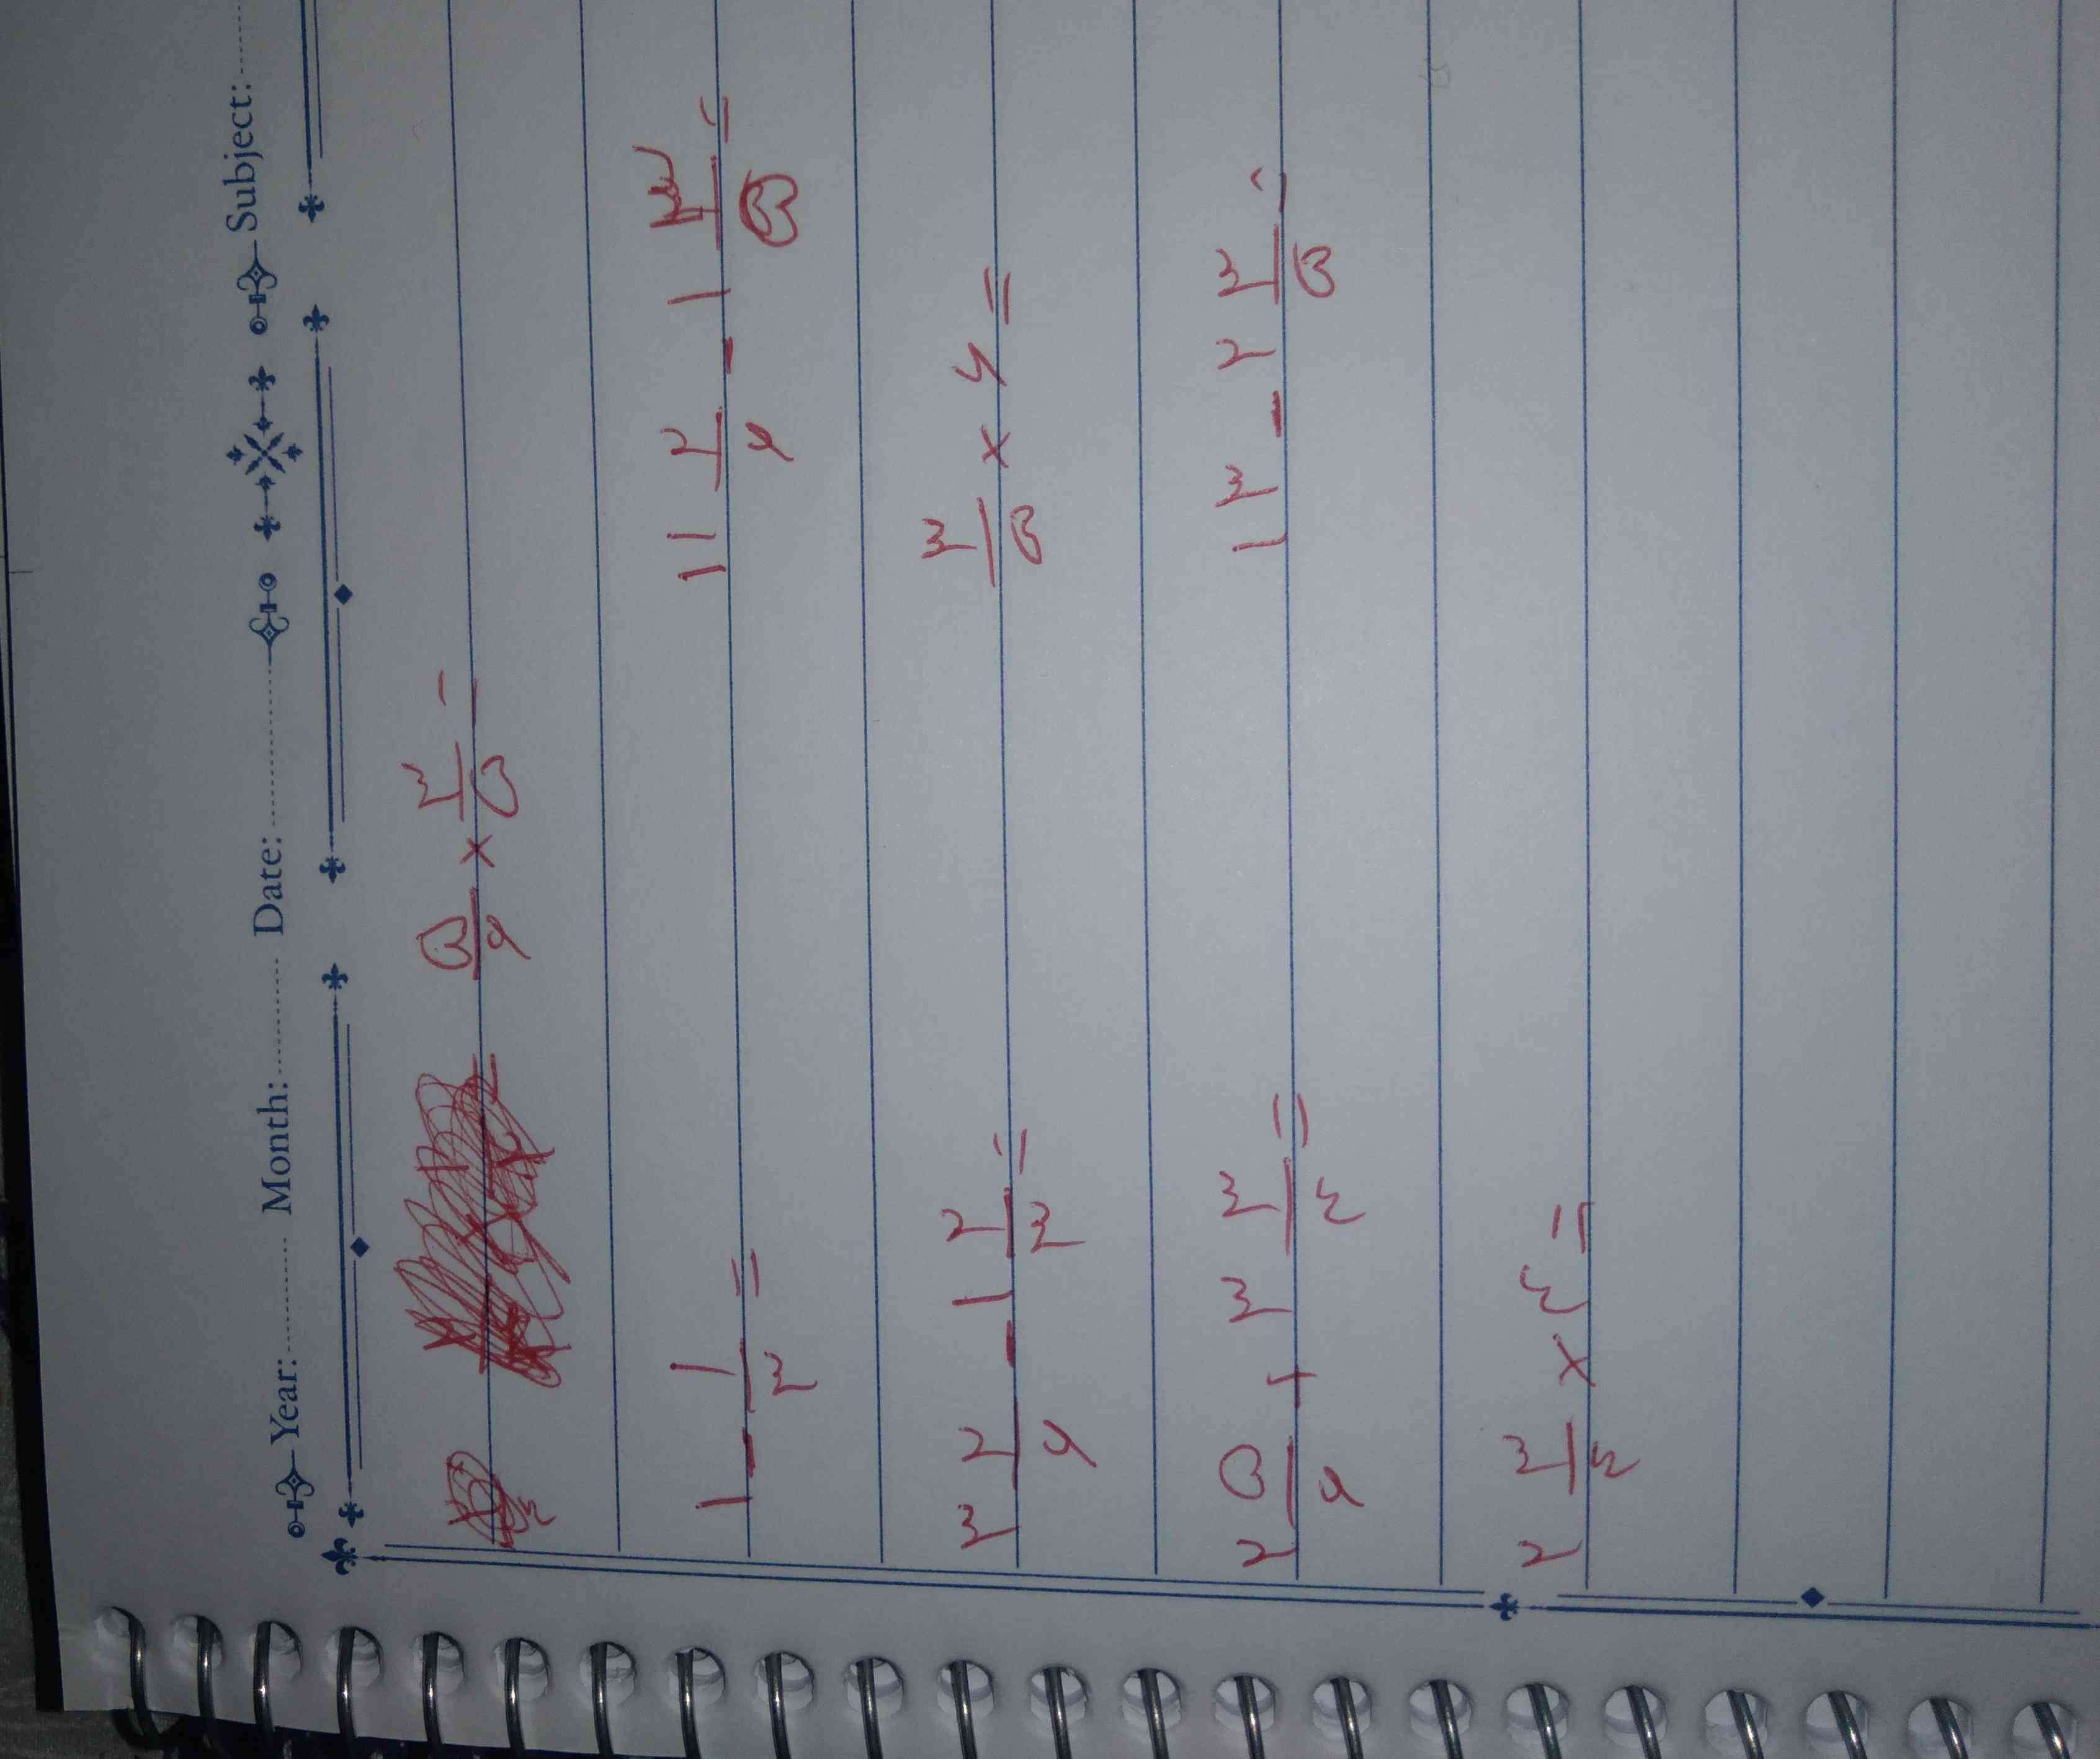 Year: Month: Date: Subject:
۵/۶ × ۳/۵ =
۱ - ۱/۳ = ۱۱ ۲/۶ - ۱ /۵ =
۳ ۲/۶ - ۱ ۲/۳ = ۳/۵ × ۶ =
۲ ۵/۶ + ۳ ۳/۴ = ۱۳ - ۲ ۳/۵ =
۲ ۳/۴ × ۴ =